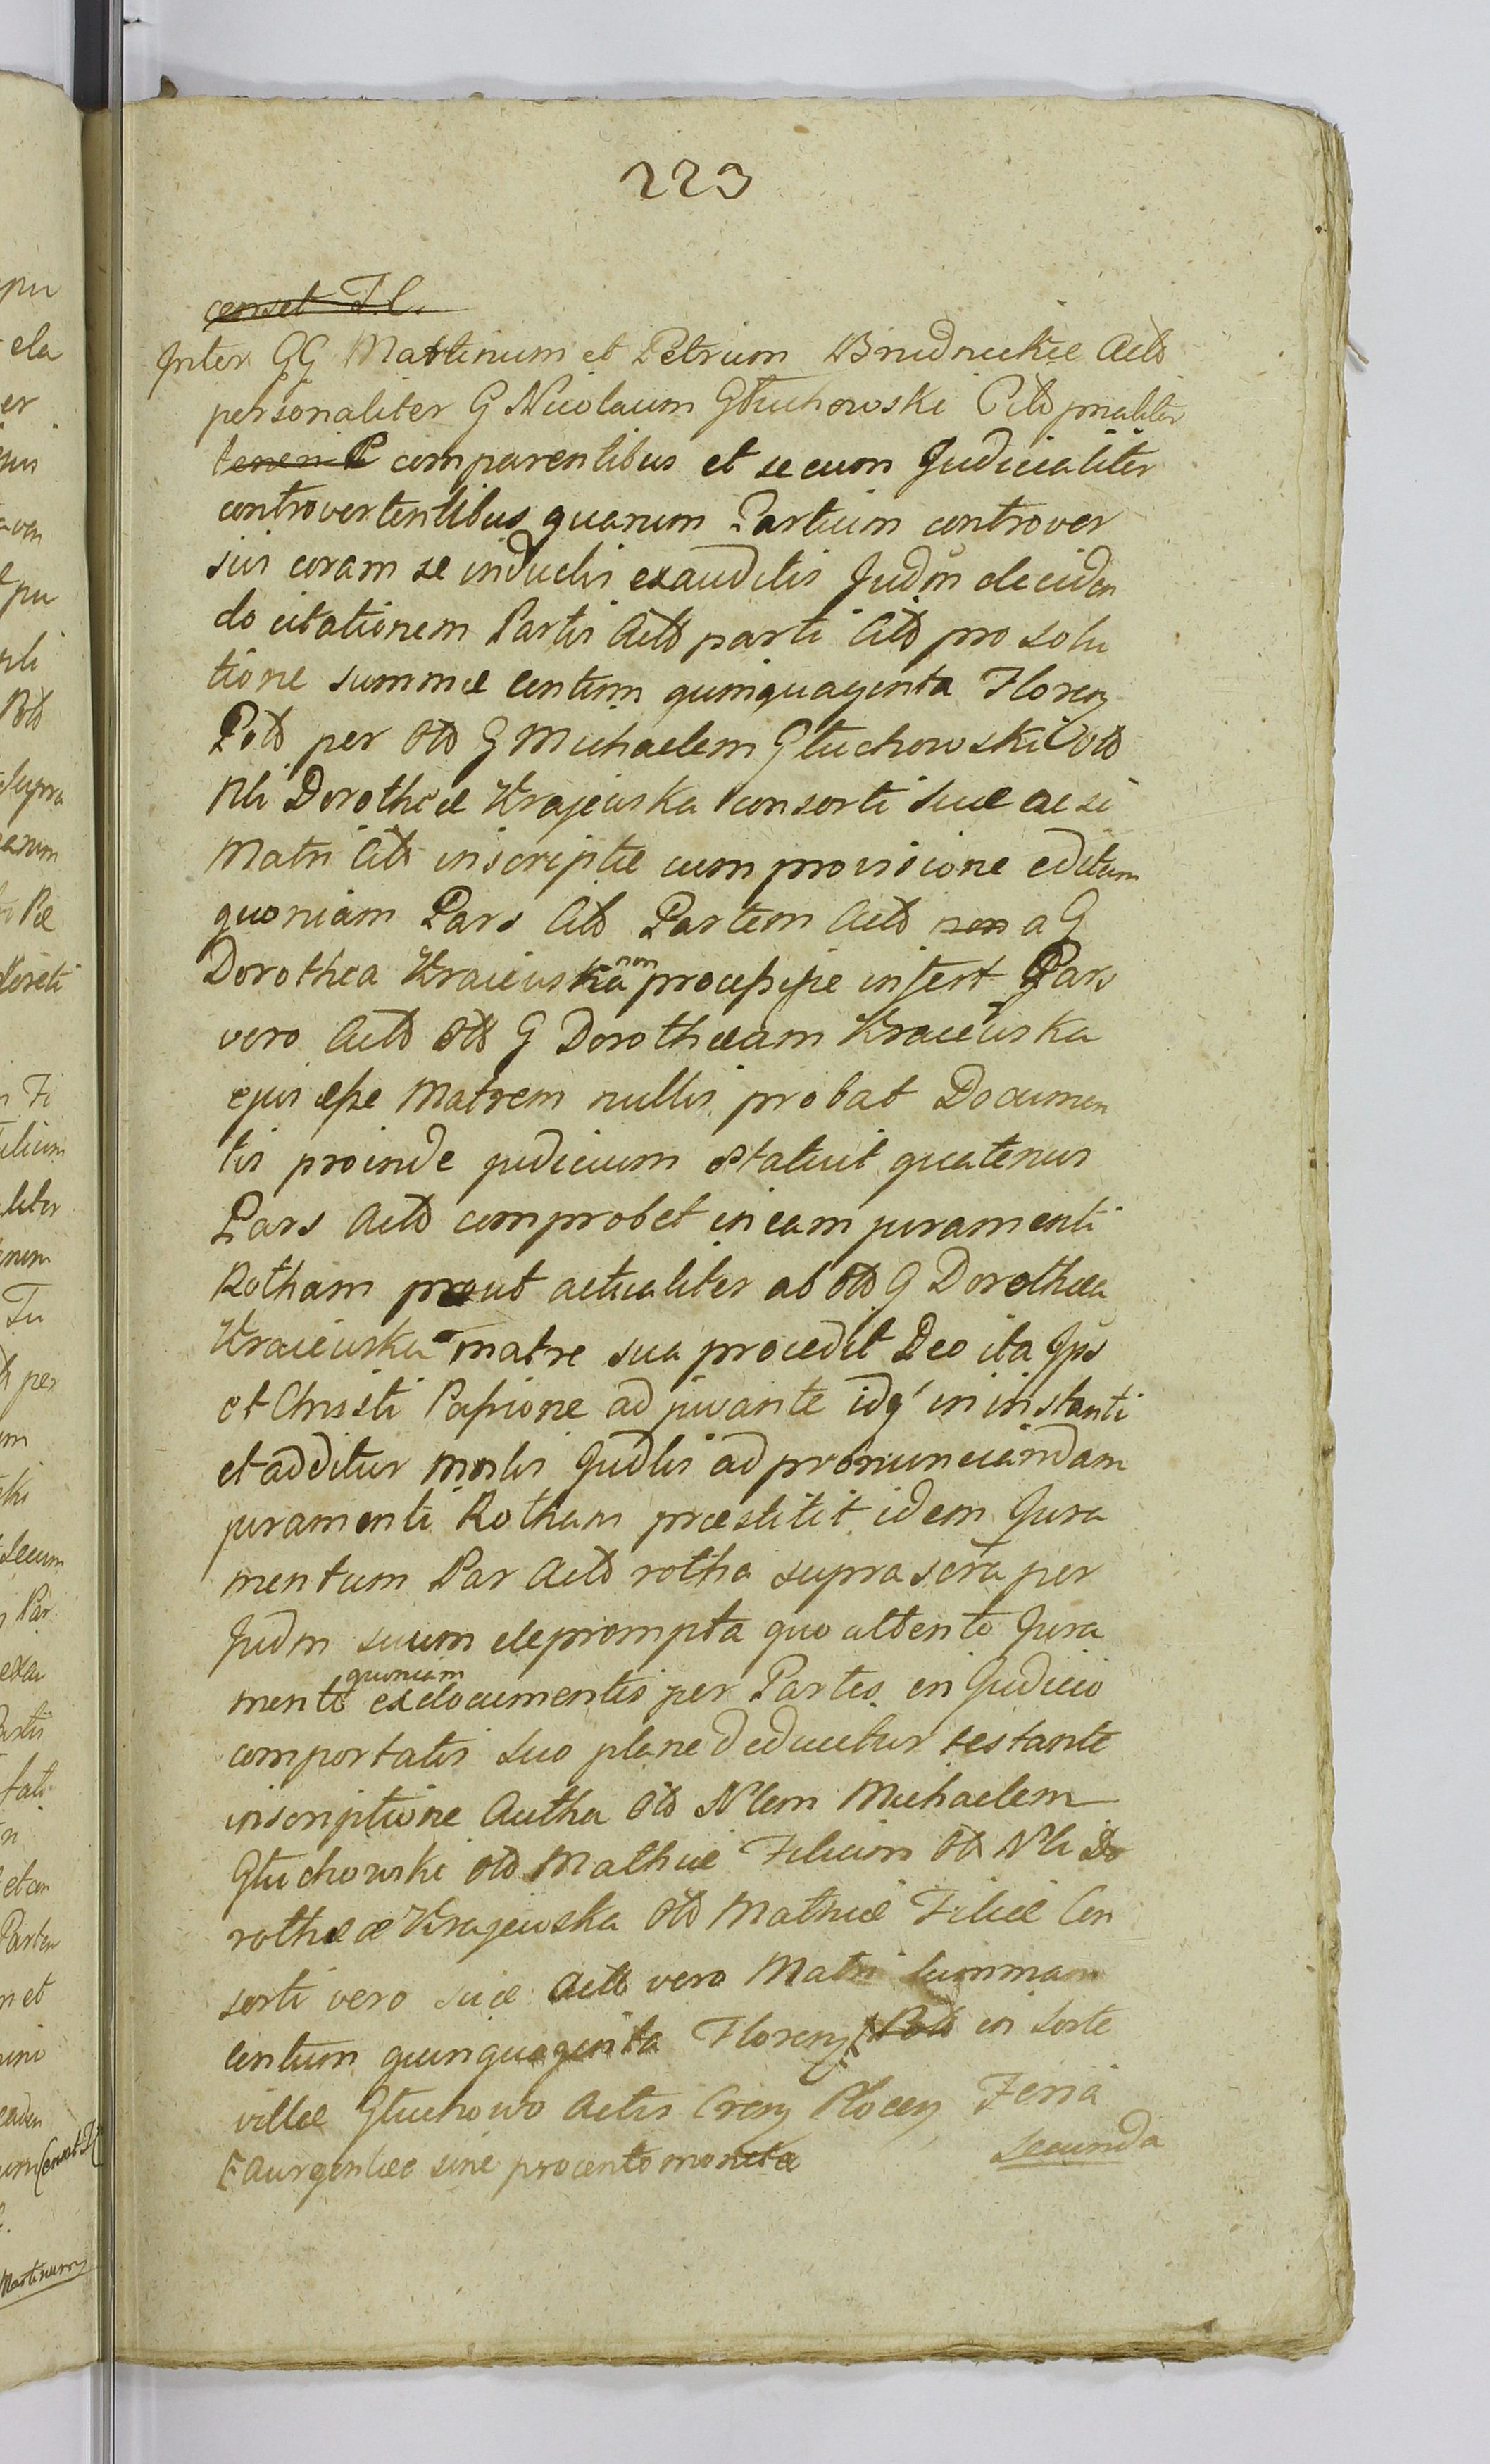 223
censet T.C.
Inter GG Martinum et Petrum Brudnickie Actō
personaliter G Nicolaum Głuchowski Citō pnaliter
teneri P comparentibus et secum Judicialiter
controvertentibus quarum Partium controver
siis coram se inductis exauditis Judm deciden
do citationem Partis Actō parti Citō pro solu
tione summæ Centum quinquaginta Floreng
Potō per Otō G Michaelem Głuchowski Otō
Nli Dorotheæ Krajewska Consorti suæ ac si
Matri Citō inscriptæ cum provisione editam
quoniam Pars Citō Partem Actō non a G
Dorothea Kraiewska non processisse infert Pars
vero Actō Otō G Dorotheam Kraiewska
ejus esse Matrem nullis probat Documen
tis proinde judicium statuit quatenus
Pars Actō comprobet in eam juramenti
Rotham prout actualiter ab Otō G Dorothea
Kraiewska matre sua procedit Deo ita Ips
et Christi Passione adjuvante idq' in instanti
et additur Mnstis Judlis ad pronunciandam
juramenti Rotham præstitit idem Jura
mentum Par Actō rotha supra scra per
Judm suum deprompta quo attento Jura
mento quoniam ex documentis per Partes in Judicio
comportatis suo plane deducitur testante
inscriptione Autha Otō Nlem Michaelem
Głuchowski Otō Mathiæ Filium Otō Nli Do
rotheæ Krajewska Otō Mathiæ Filiæ Con
sorti vero suæ Actō vero Matri Summam
Centum quinquaginta Floreng Potō in Sorte
villæ Głuchowo Actis Creng Plocen Feria
aurgentiæ sine procento moneta
Secunda